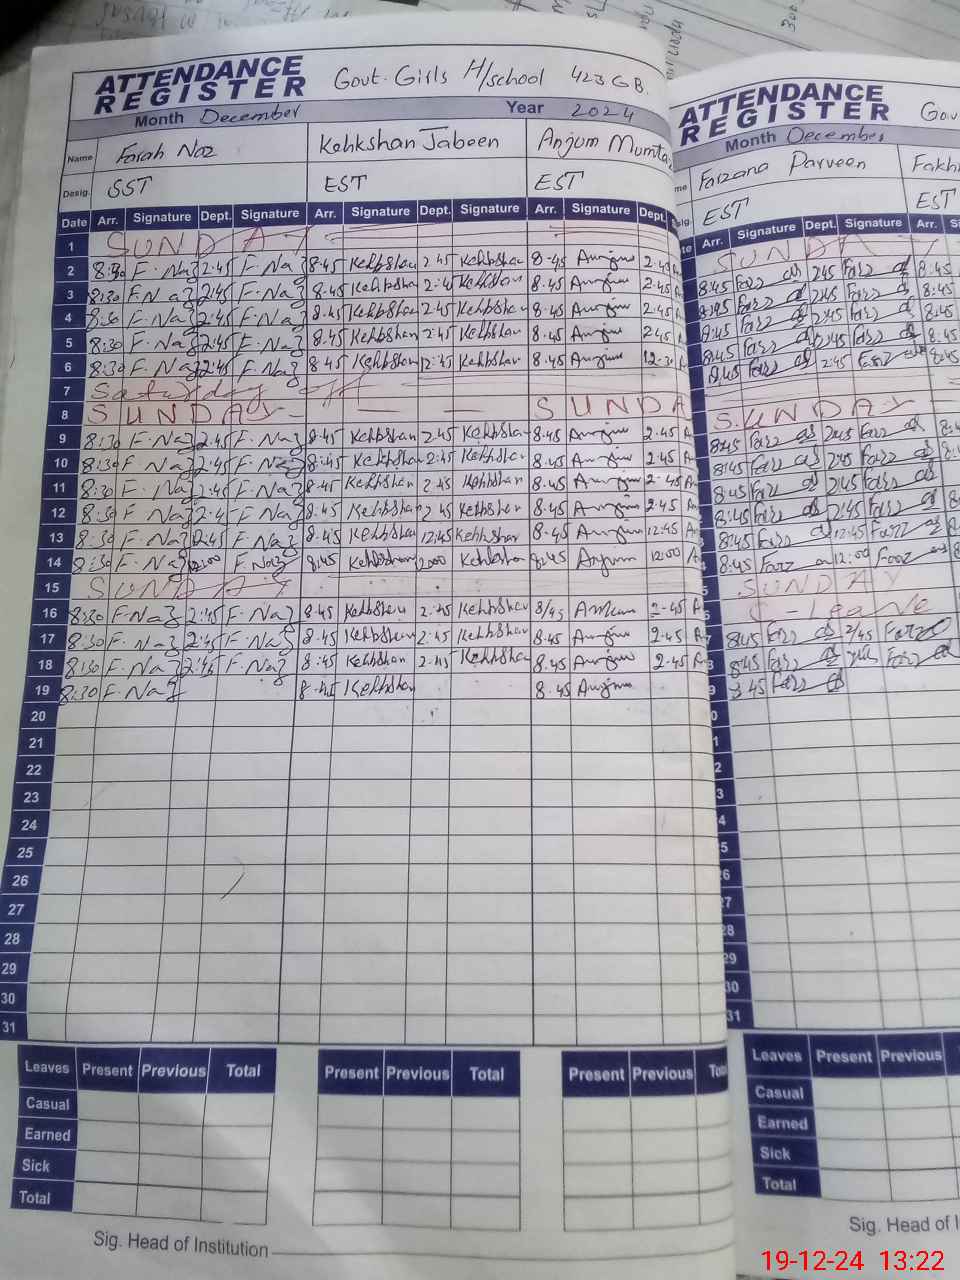 ATTENDANCE REGISTER Govt. Girls H/school 423 G.B.
Month December Year 2024
Name Farah Naz Kehkshan Jabeen Anjum Mumta
Desig. SST EST EST
Date Arr. Signature Dept. Signature Arr. Signature Dept. Signature Arr. Signature Dept.
1 SUNDAY
2 8:30 F.Naz 2:45 F.Naz 8:45 Kehkshan 2:45 Kehkshan 8:45 Anjum 2:45
3 8:30 F.Naz 2:45 F.Naz 8:45 Kehkshan 2:45 Kehkshan 8.45 Anjum 2:45
4 8:30 F.Naz 2:45 F.Naz 8:45 Kehkshan 2:45 Kehkshan 8.45 Anjum 2:45
5 8:30 F.Naz 2:45 F.Naz 8:45 Kehkshan 2:45 Kehkshan 8:45 Anjum 2:45
6 8:30 F.Naz F.Naz 8:45 Kehkshan 12:45 Kehkshan 8.45 Anjum
7 Saturday off
8 SUNDAY SUNDA
9 8:30 F.Naz 2:45 F.Naz 8:45 Kehkshan 2:45 Kehkshan 8.45 Anjum 2.45 A
10 8:30 F.Naz 2:45 F.Naz 8:45 Kehkshan 2:45 Kehkshan 8.45 Anjum 2.45 A
11 8:30 F.Naz 2:45 F.Naz 8:45 Kehkshan 2:45 Kehkshan 8.45 Anjum 2.45
12 8:30 F.Naz 2:45 F.Naz 8:45 Kehkshan 2:45 Kehkshan 8.45 Anjum 2.45
13 8:30 F.Naz 12:45 F.Naz 8:45 Kehkshan 12:45 Kehkshan 8.45 Anjum 12:45
14 8:30 F.Naz 12:00 F.Naz 8:45 Kehkshan 12:00 Kehkshan 8:45 Anjum 12:00 A
15 SUNDAY
16 8:30 F.Naz 2:45 F.Naz 8:45 Kehkshan 2:45 Kehkshan 8/45 Anjum 2-45 A
17 8:30 F.Naz 2:45 F.Naz 8:45 Kehkshan 2:45 Kehkshan 8.45 Anjum 2.45 A
18 8:30 F.Naz 2:45 F.Naz 8:45 Kehkshan 2:45 Kehkshan 8.45 Anjum 2.45 A
19 8:30 F.Naz 8:45 Kehkshan 8.45 Anjum
20
21
22
23
24
25
26
27
28
29
30
31
Leaves Present Previous Total Present Previous Total Present Previous
Casual
Earned
Sick
Total
Sig. Head of Institution
ATTENDANCE REGISTER Gov
Month December
Farzana Parveen Fakh
EST EST
Arr. Signature Dept. Signature Arr.
SUNDAY
8:45 Farz 2:45 Farz 8:45
8:45 Farz 2:45 Farz 8:45
8:45 Farz 2:45 Farz 8:45
8:45 Farz 2:45 Farz 8:45
8:45 Farz 2:45 Farz 8:45
SUNDAY
8:45 Farz 2:45 Farz
8:45 Farz 2:45 Farz
8:45 Farz 2:45 Farz
8:45 Farz 2:45 Farz
8:45 Farz 12:45 Farz
8:45 Farz 12:00 Farz
SUNDAY
C-Leave
8:45 Farz 2/45 Farz
8:45 Farz 2:45 Farz
8:45 Farz
Leaves Present Previous
Casual
Earned
Sick
Total
Sig. Head of
19-12-24 13:22